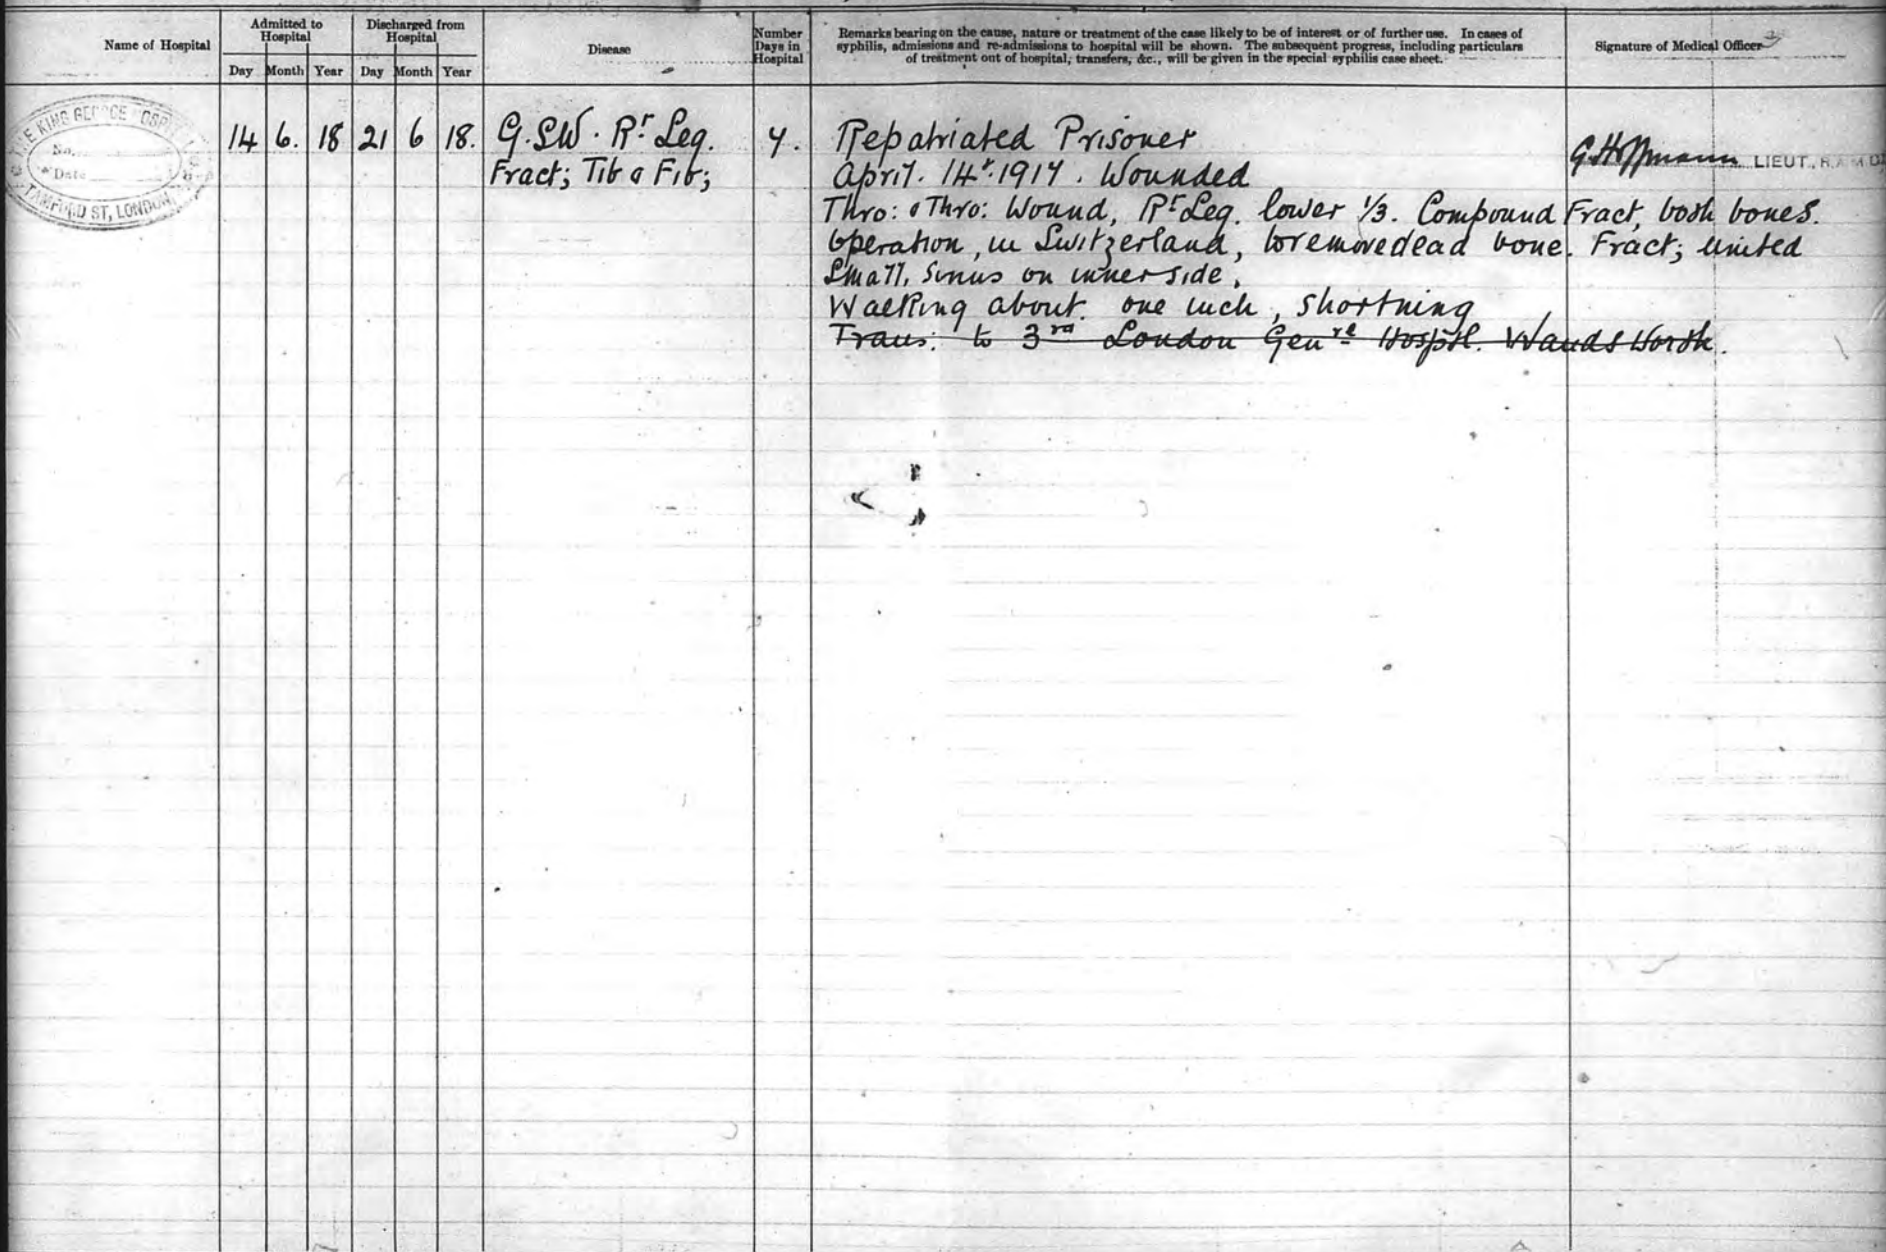 Name of Hospital
Admitted to Hospital
Discharged from Hospital
Day Month Year Day Month Year
Disease
Number Days in Hospital
Remarks bearing on the cause, nature or treatment of the case likely to be of interest or of further use. In cases of
syphilis, admissions and re-admissions to hospital will be shown. The subsequent progress, including particulars
of treatment out of hospital, transfers, &c., will be given in the special syphilis case sheet.
Signature of Medical Officer
THE KING GEORGE HOSPITAL
No.
Date
STAMFORD ST, LONDON
14 6. 18 21 6 18. G.S.W. Rr Leg. 7. Repatriated Prisoner
Fract; Tib & Fib;
April. 14th. 1917. Wounded
Thro: & Thro: Wound, Rr Leg. lower 1/3. Compound Fract, both bones.
Operation, in Switzerland, to remove dead bone. Fract; united
Small, Sinus on inner side,
Walking about. one inch, shortning
Trans: to 3rd London Genrl Hosptl. Wandsworth.
G. Hoffmann LIEUT., R.A.M.C.